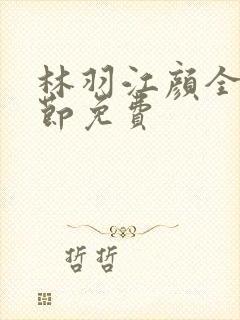 林羽江颜全
节免费
哲哲